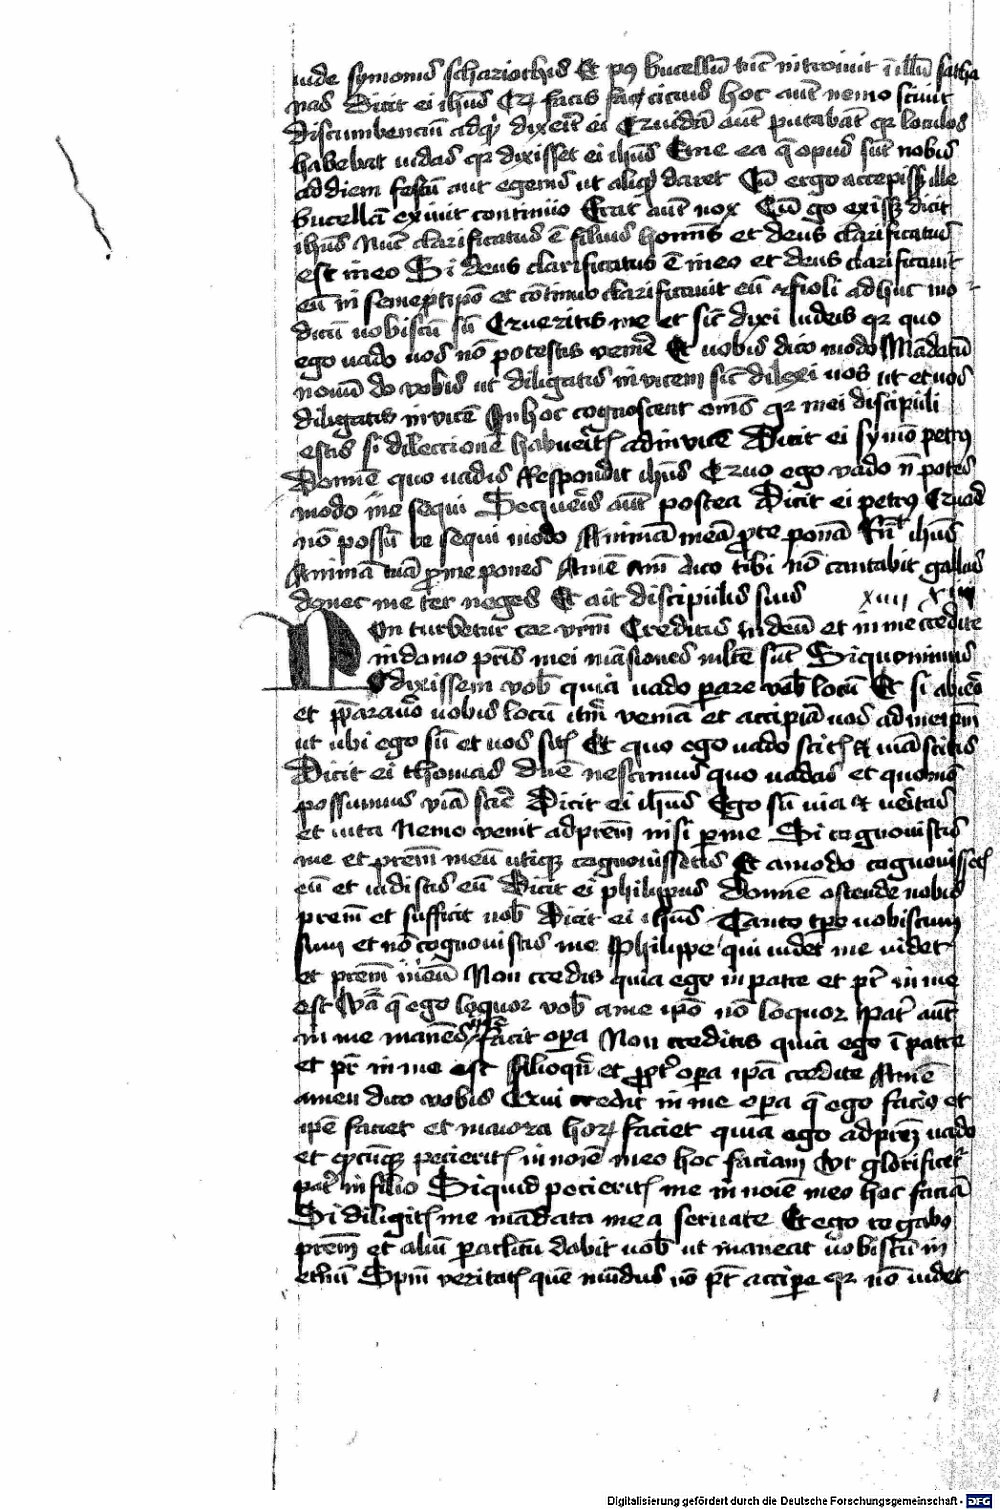 iude symonis schariothis Et pꝯ bucellā tūc introiuit ī illū satha
nas Dicit ei ihūs Qꝛ facis fac citius hoc aut̄ nemo sciuit
discumbenciū adqͥd dixerit ei Quidā aut̄ putabāt qꝛ loculos
habebat iudas qꝛ dixisset ei ihūs Eme ea q̄ opus sūt nobis
ad diem festū aut egenis ut aliqͥd daret Cū ergo accepisset ille
bucellā exiuit continuo Erat aut̄ nox Cū ergo exisset dicit
ihūs Nūc clarificatus ē filius hoīnis et deus clarificatus
est in eo Si deus clarificatus ē in eo et deus clarificauit
eū in semetipō et cōtinuo clarificauit eū filioli adhuc mo
dicū uobiscū sū Queritis me et sic̄ dixi iudeis qꝛ quo
ego uado uos nō potestis venire Et uobis dico modo Mādatū
nouū do vobis ut diligatis inuicem sic̄ dilexi uos ut et uos
diligatis inuicē In hoc cognoscent om̄s qꝛ mei discipuli
estis si dileccionē habueritꝭ adinuicē Dicit ei symō petrꝯ
Domīe quo uadis Respondit ihūs Quo ego vado nō potes
modo me sequi Sequeris aut̄ postea Dicit ei petrꝯ Quare
nō possū te sequi modo Animā meā pro te ponā Rn̄t ihūs
Animā tuā pro me pones Amē am̄ dico tibi nō cantabit gallus
donec me ter neges Et ait discipulis suis xiiii
Non turbetur cor vr̄m Creditis in deū et in me credite
in domo pr̄is mei māsiones multe sūt Si quominus
dixissem vob̄ quia uado parare vob̄ locū Et si abiero
et p̄parauero uobis locū itm̄ veniā et accipiā uos ad meipm̄
ut ubi ego sū et uos sitꝭ Et quo ego uado scitꝭ et uiā scitis
Dicit ei thomas dn̄e nescimus quo uadis et quomō
possumus viā scire Dicit ei ihūs Ego sū uia et ueritas
et uita Nemo venit ad prēm nisi per me Si cognouistis
me et prēm meū utiqꝫ cognouissetis Et amodo cognouissetꝭ
eū et uidistis eū Dicit ei philippus Domīe ostende nobis
prēm et sufficit nob̄ Dicit ei ihūs Tanto tpꝰe uobiscum
sum et nō cognouistis me Philippe qui uidet me uidet
et prēm meū Non credis quia ego in patre et pr̄ in me
est Verba q̄ ego loquor vob̄ a me ipō nō loquor Pater aut̄
in me manens ipse facit opera Non creditis quia ego ī patre
et pr̄ in me est Alioqn̄ et propt̄ opera ipā credite Amē
amen dico vobis Qui credit in me opera q̄ ego facio et
ipē faciet et maiora horꝝ faciet quia ego ad prēꝫ uado
et qdcūqꝫ pecieritꝭ in noīe meo hoc faciam Vt glorificetur
pater in filio Si quid pecieritꝭ me in noīe meo hoc faciā
Si diligitꝭ me mādata mea seruate Et ego rogabo
prēm et aliū paraclitū dabit uob̄ ut maneat uobiscū in
etnū Spm̄ veritatꝭ quē mūdus nō pt̄ accipere qꝛ nō uidet
Digitalisierung gefördert durch die Deutsche Forschungsgemeinschaft - DFG